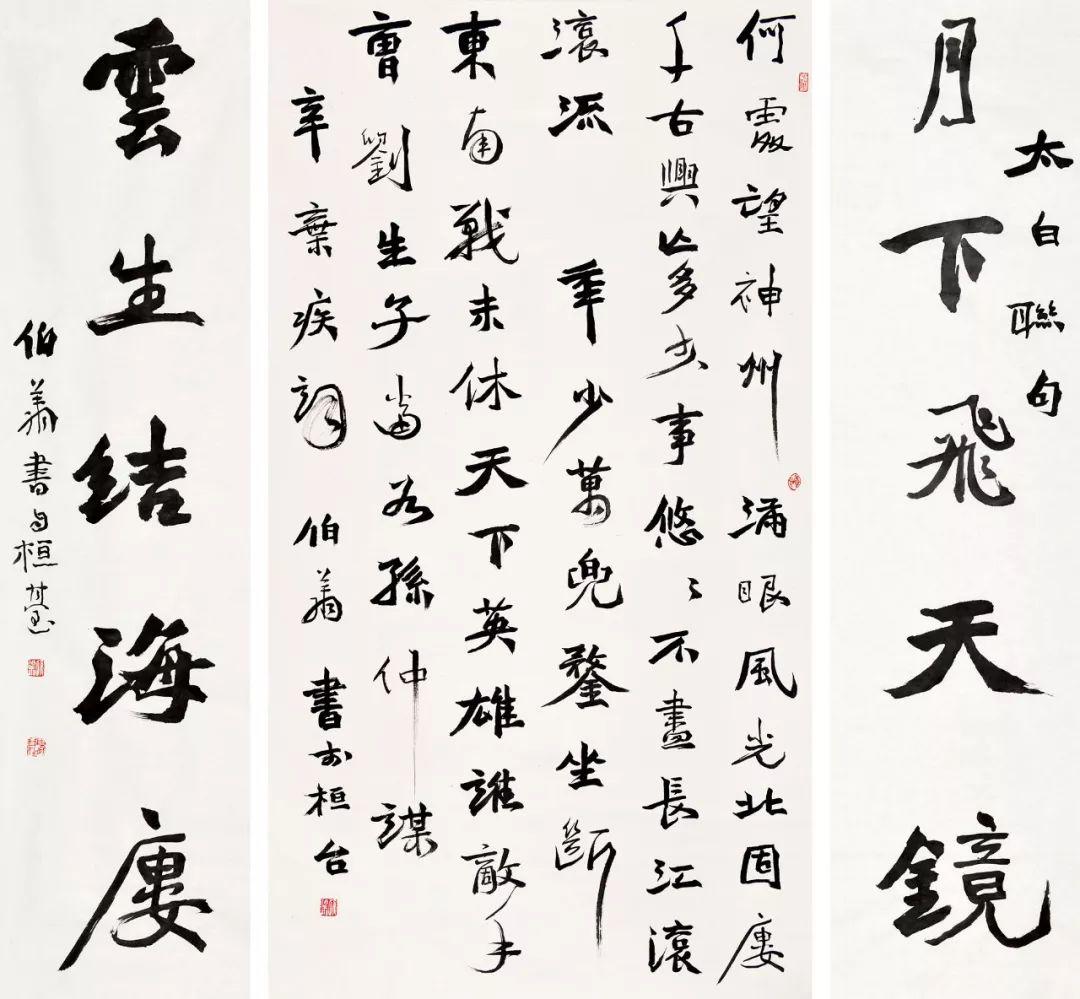 太白聯句
月下飛天鏡
何處望神州 滿眼風光北固廔
千古興亡多少事悠〻不盡長江滾
滾流 年少萬兜鍪坐斷
東南戰未休天下英雄誰敵手
曹劉生子當如孫仲謀
辛棄疾詞 伯 書於桓台
雲生結海廔
伯 書於桓臺